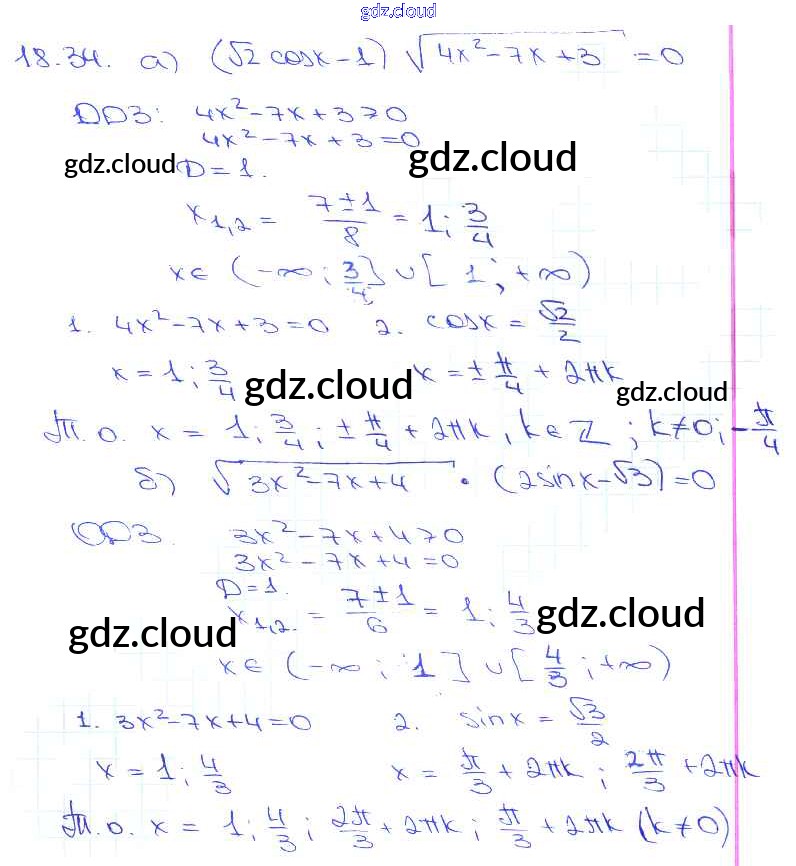 gdz.cloud
18.34. а) (√2 cosx - 1) √(4x² - 7x + 3) = 0
ОДЗ: 4x² - 7x + 3 ≥ 0
4x² - 7x + 3 = 0
gdz.cloud D = 1. gdz.cloud
x₁,₂ = (7 ± 1)/8 = 1; 3/4
x ∈ (-∞; 3/4] ∪ [1; +∞)
1. 4x² - 7x + 3 = 0 2. cosx = √2/2
x = 1; 3/4 gdz.cloud x = ± π/4 + 2πk gdz.cloud
Т. о. x = 1; 3/4; ± π/4 + 2πk, k ∈ Z; k ≠ 0; - π/4
б) √(3x² - 7x + 4) · (2sinx - √3) = 0
ОДЗ. 3x² - 7x + 4 ≥ 0
3x² - 7x + 4 = 0
D = 1.
gdz.cloud x₁,₂ = (7 ± 1)/6 = 1; 4/3 gdz.cloud
x ∈ (-∞; 1] ∪ [4/3; +∞)
1. 3x² - 7x + 4 = 0 2. sinx = √3/2
x = 1; 4/3 x = π/3 + 2πk; 2π/3 + 2πk
Т. о. x = 1; 4/3; 2π/3 + 2πk; π/3 + 2πk (k ≠ 0)